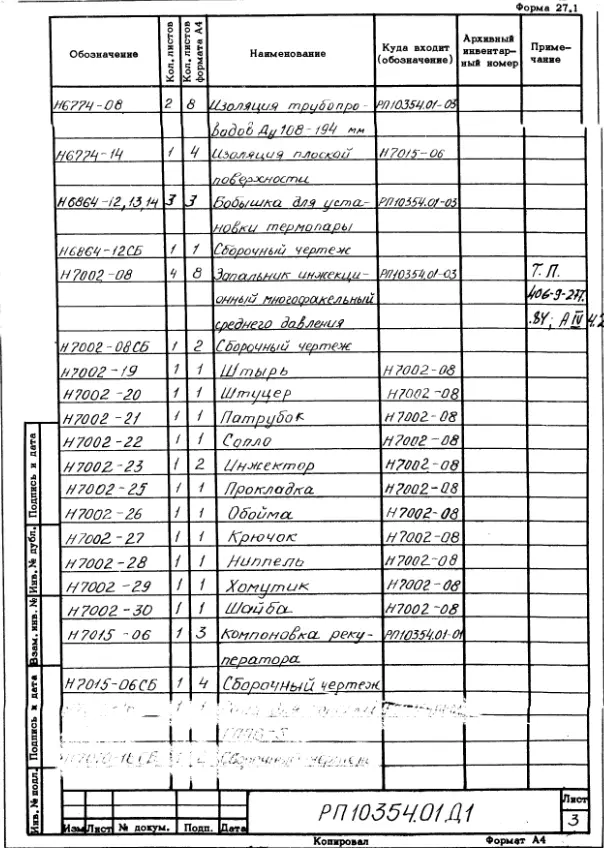 Форма 27.1
Обозначение Кол. листов Кол. листов формата А4 Наименование Куда входит (обозначение) Архивный инвентарный номер Примечание
Н6774-08 2 8 Изоляция трубопро- РП10354.01-03
водов Ду 108-194 мм
Н6774-14 1 4 Изоляция плоской Н7015-06
поверхности
Н6864-12,13,14 3 3 Бобышка для уста- РП10354.01-03
новки термопары
Н6864-12СБ 1 1 Сборочный чертеж
Н7002-08 4 8 Запальник инжекци- РП10354.01-03 Т.П.
онный многофакельный 406-9-277.
среднего давления .84; А IV 4.2
Н7002-08СБ 1 2 Сборочный чертеж
Н7002-19 1 1 Штырь Н7002-08
Н7002-20 1 1 Штуцер Н7002-08
Н7002-21 1 1 Патрубок Н7002-08
Н7002-22 1 1 Сопло Н7002-08
Н7002-23 1 2 Инжектор Н7002-08
Н7002-25 1 1 Прокладка Н7002-08
Н7002-26 1 1 Обойма Н7002-08
Н7002-27 1 1 Крючок Н7002-08
Н7002-28 1 1 Ниппель Н7002-08
Н7002-29 1 1 Хомутик Н7002-08
Н7002-30 1 1 Шайба Н7002-08
Н7015-06 1 3 Компоновка реку- РП10354.01-01
ператора
Н7015-06СБ 1 4 Сборочный чертеж
1 1
Сборочный чертеж
Подпись и дата
Инв. № дубл.
Взам. инв. №
Подпись и дата
Инв. № подл.
Изм Лист № докум. Подп. Дата
РП10354.01Д1
Лист
3
Копировал Формат А4